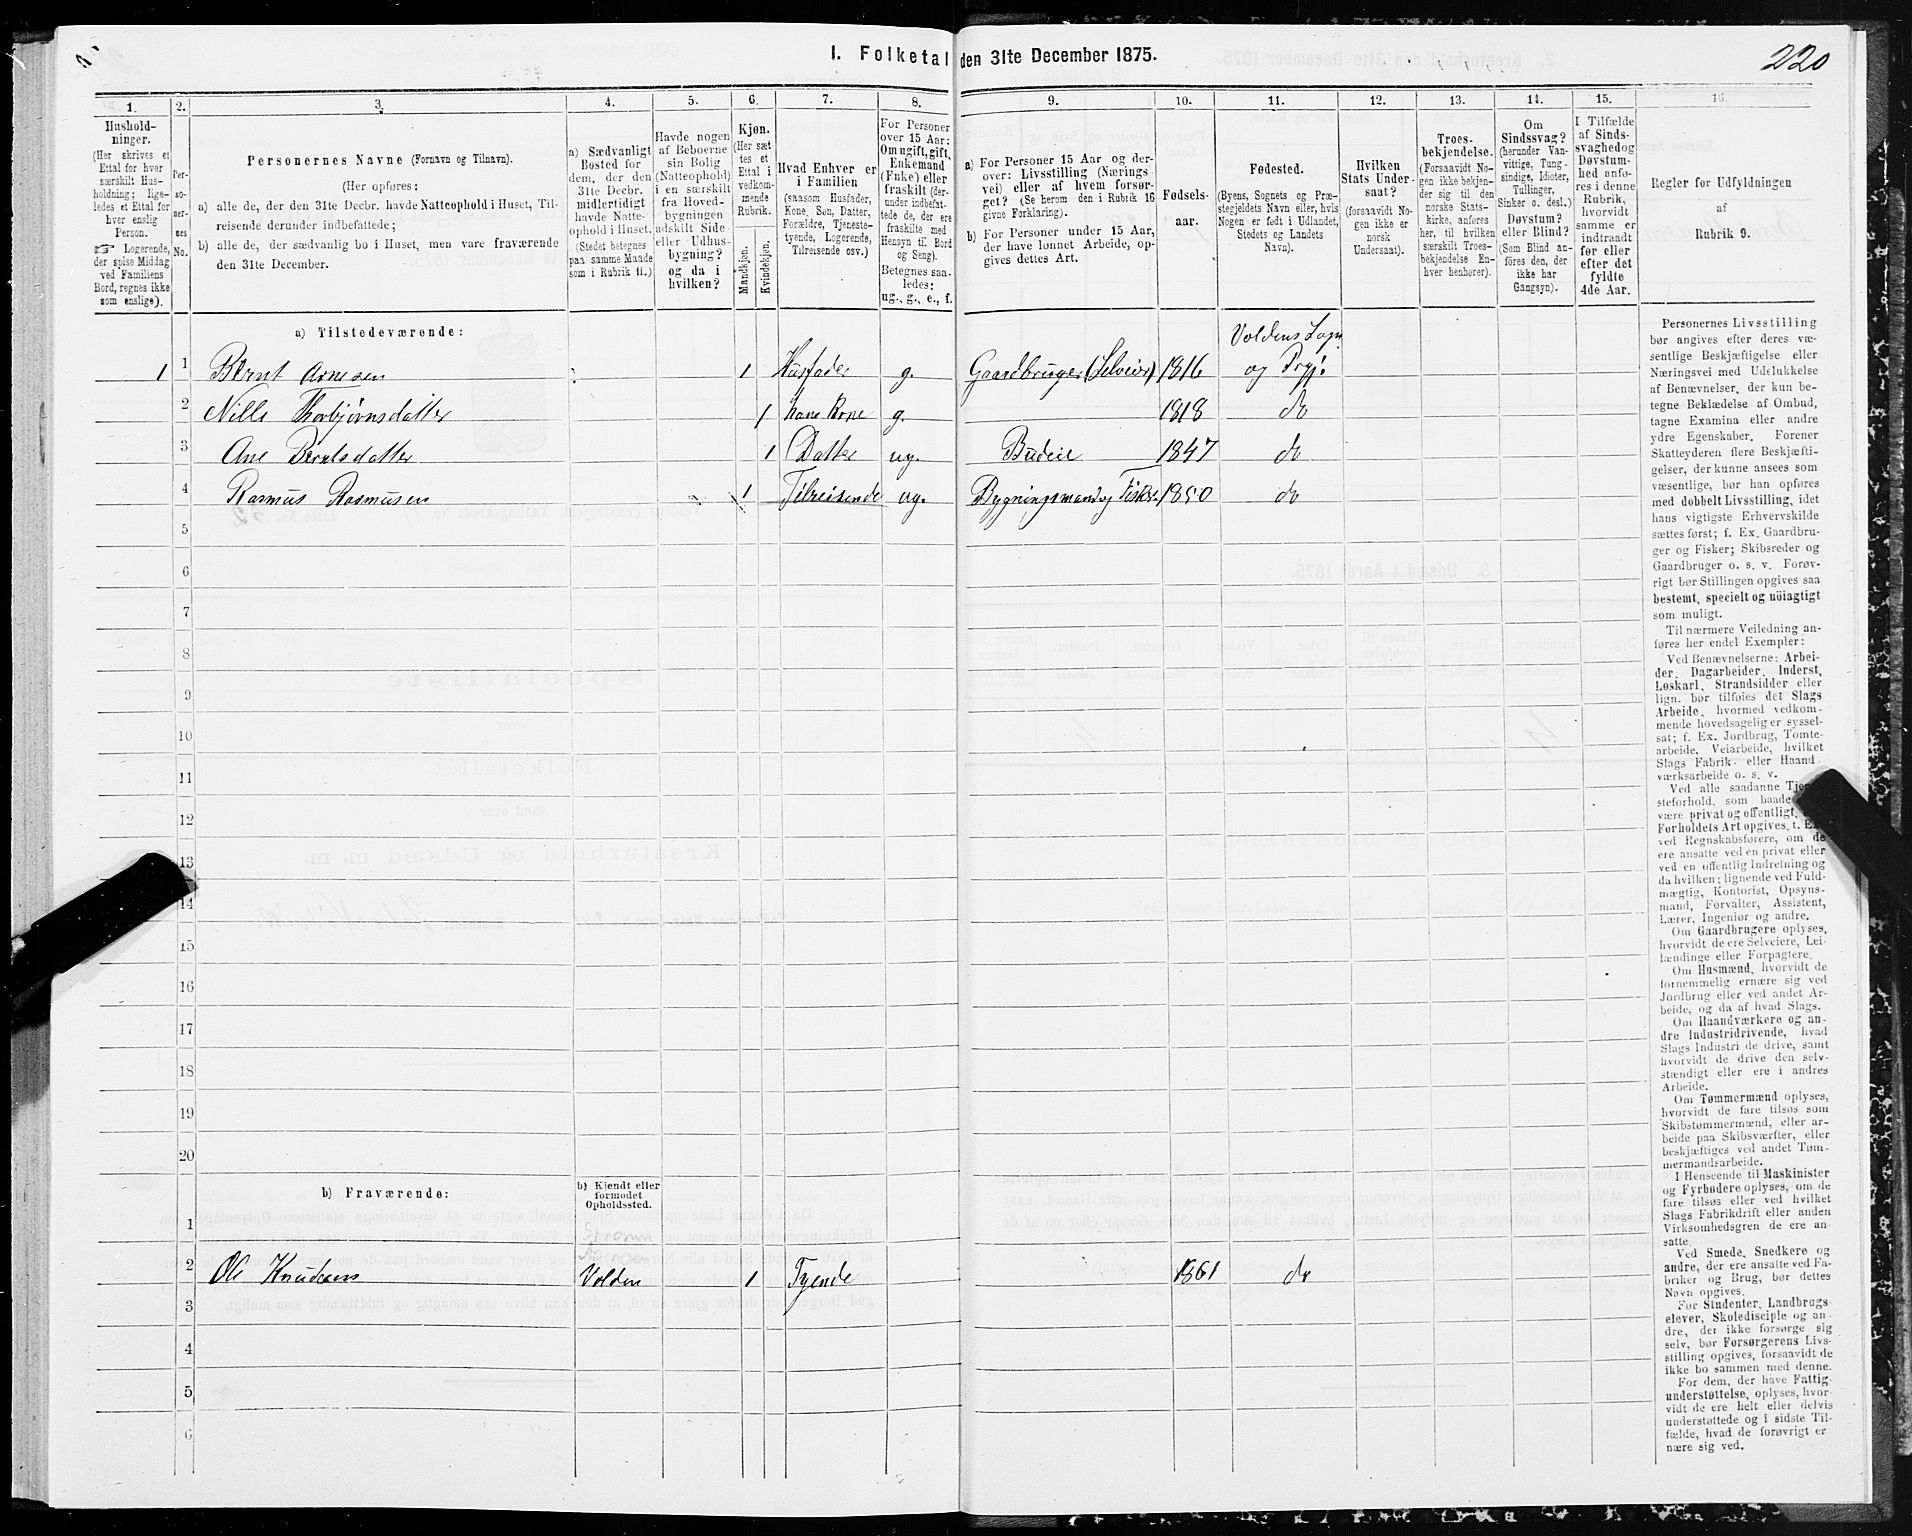 I. Folketal den 31te December 1875.
220
1.
2.
3.
4.
5.
6.
7.
8.
9.
10.
11.
12.
13.
14.
15.
16.
Hushold-
ninger.
(Her skrives et
Ettal for hver
særskilt Hus-
holdning; lige-
ledes et Ettal for
hver enslig
Person.
☞ Logerende,
der spise Middag
ved Familiens
Bord, regnes ikke
som enslige).
Per-
so-
ner-
nes
No.
Personernes Navne (Fornavn og Tilnavn).
(Her opføres:
a) alle de, der den 31te Decbr. havde Natteophold i Huset, Til-
reisende derunder indbefattede;
b) alle de, der sædvanlig bo i Huset, men vare fraværende
den 31te December.
a) Sædvanligt
Bosted for
dem, der den
31te Decbr.
midlertidigt
havde Natte-
ophold i Huset.
(Stedet betegnes
paa samme Maade
som i Rubrik 11.)
Havde nogen
af Beboerne
sin Bolig
(Natteophold)
i en særskilt
fra Hoved-
bygningen
adskilt Side
eller Udhus-
bygning?
og da i
hvilken?
Kjøn.
(Her sæt
tes et
Ettal i
vedkom-
mende
Rubrik.
Mandkjøn.
Kvindekjøn.
Hvad Enhver er
i Familien
(saasom Husfader,
Kone, Søn, Datter,
Forældre, Tjeneste-
tyende, Logerende,
Tilreisende osv.)
For Personer
over 15 Aar:
Om ugift, gift,
Enkemand
(Enke) eller
fraskilt (der-
under indbefat-
tede de, der ere
fraskilte med
Hensyn til Bord
og Seng).
Betegnes saa-
ledes:
ug., g., e., f.
a) For Personer 15 Aar og der-
over: Livsstilling (Nærings
vei) eller af hvem forsør-
get? (Se herom den i Rubrik 16
givne Forklaring).
b) For Personer under 15 Aar,
der have lønnet Arbeide, op-
gives dettes Art.
Fødsels-
aar.
Fødested.
(Byens, Sognets og Præ-
stegjeldets Navn eller, hvis
Nogen er født i Udlandet,
Stedets og Landets
Navn).
Hvilken
Stats Under-
saat?
(forsaavidt No-
gen ikke er
norsk
Undersaat).
Troes-
bekjendelse.
(Forsaavidt No-
gen ikke bekjen-
der sig til den
norske Stats-
kirke, anføres
her, til hvilken
særskilt Troes-
bekjendelse En-
hver henhører).
Om
Sindssvag?
(herunder Van-
vittige, Tung-
sindige, Idioter,
Tullinger,
Sinker o. desl.)
Døvstum?
eller Blind?
(Som Blind an-
føres den, der
ikke har
Gangsyn).
I Tilfælde
af Sinds-
svaghed og
Døvstum-
hed anfø-
res i denne
Rubrik,
hvorvidt
samme er
indtraadt
før eller
efter det
fyldte
4de Aar.
Regler for Udfyldningen
af
Rubrik 9.
a) Tilstedeværende:
Voldens Sogn
1 1 Bernt Arnesen 1 Husfader g. Gaardbruger (Selveier) 1816 og Prgj.
2 Nille Thorbjørnsdatter 1 hans Kone g. 1818 do
3 Ane Berntsdatter 1 Datter ug. Budeie 1847 do
4 Rasmus Rasmusen 1 Tilreisende ug. Bygningsmand og Fisker 1850 do
5
6
7
8
9
10
11
12
13
14
15
16
17
18
19
20
b) Fraværende:
b) Kjendt eller
formodet
Opholdssted.
1
2 Ole Knudsen Volden 1 Tyende 1861 do
3
4
5
6
Personernes Livsstilling
bør angives efter deres væ-
sentlige Beskjæftigelse eller
Næringsvei med Udelukkelse
af Benævnelser, der kun be-
tegne Beklædelse af Ombud,
tagne Examina eller andre
ydre Egenskaber. Forener
Skatteyderen flere Beskjæfti-
gelser, der kunne ansees som
væsentlige, bør han opføres
med dobbelt Livsstilling, idet
hans vigtigste Erhvervskilde
sættes først; f. Ex. Gaardbru-
ger og Fisker; Skibsreder og
Gaardbruger o. s. v. Forøv-
rigt bør Stillingen opgives saa
bestemt, specielt og nöiagtigt
som muligt.
Til nærmere Veiledning an-
føres her endel Exempler:
Ved Benævnelserne: Arbei-
der, Dagarbeider, Inderst,
Løskarl, Strandsidder eller
lign. bør tilføies det Slags
Arbeide, hvormed vedkom-
mende hovedsagelig er syssel-
sat; f. Ex. Jordbrug, Tomte-
arbeide, Veiarbeide, hvilket
Slags Fabrik- eller Haand-
værksarbeide o. s. v.
Ved alle saadanne
steforhold, som baade
være privat og offentligt,
Forholdets Art opgives, t.
ved Regnskabsførere, om de
ere ansatte ved en privat eller
ved en offentlig Indretning og
da hvilken; lignende ved Fuld-
mægtig, Kontorist, Opsyns-
mand, Forvalter, Assistent,
Lærer, Ingeniør og andre.
Om Gaardbrugere oplyses,
hvorvidt de ere Selveiere, Lei-
lændinge eller Forpagtere.
Om Husmænd, hvorvidt de
fornemmelig ernære sig ved
Jordbrug eller ved andet Ar-
beide, og da af hvad Slags.
Om Haandværkere og an-
dre Industridrivende, hvad
Slags Industri de drive, samt
hvorvidt de drive den selv-
stændigt eller ere i andres
Arbeide.
Om Tømmermænd oplyses,
hvorvidt de fare tilsøs som
Skibstømmermænd, eller ar-
beide paa Skibsværfter, eller
beskjæftiges ved andet Tøm-
mermandsarbeide.
I Henseende til Maskinister
og Fyrbødere oplyses, om de
fare tilsøs eller ved hvilket
Slags Fabrikdrift eller anden
Virksomhedsgren de ere an-
satte.
Ved Smede, Snedkere og
andre, der ere ansatte ved Fa-
briker og Brug, bør dettes
Navn opgives.
For Studenter, Landbrugs-
elever, Skoledisciple og an-
dre, der ikke forsørge sig
selv, bør Forsørgerens Livs-
stilling opgives, forsaavidt de
ikke bo sammen med denne.
For dem, der have Fattig-
understøttelse, oplyses, hvor-
vidt de ere helt eller delvis
understøttede og i sidste Til-
fælde, hvad de forøvrigt er
nære sig ved.